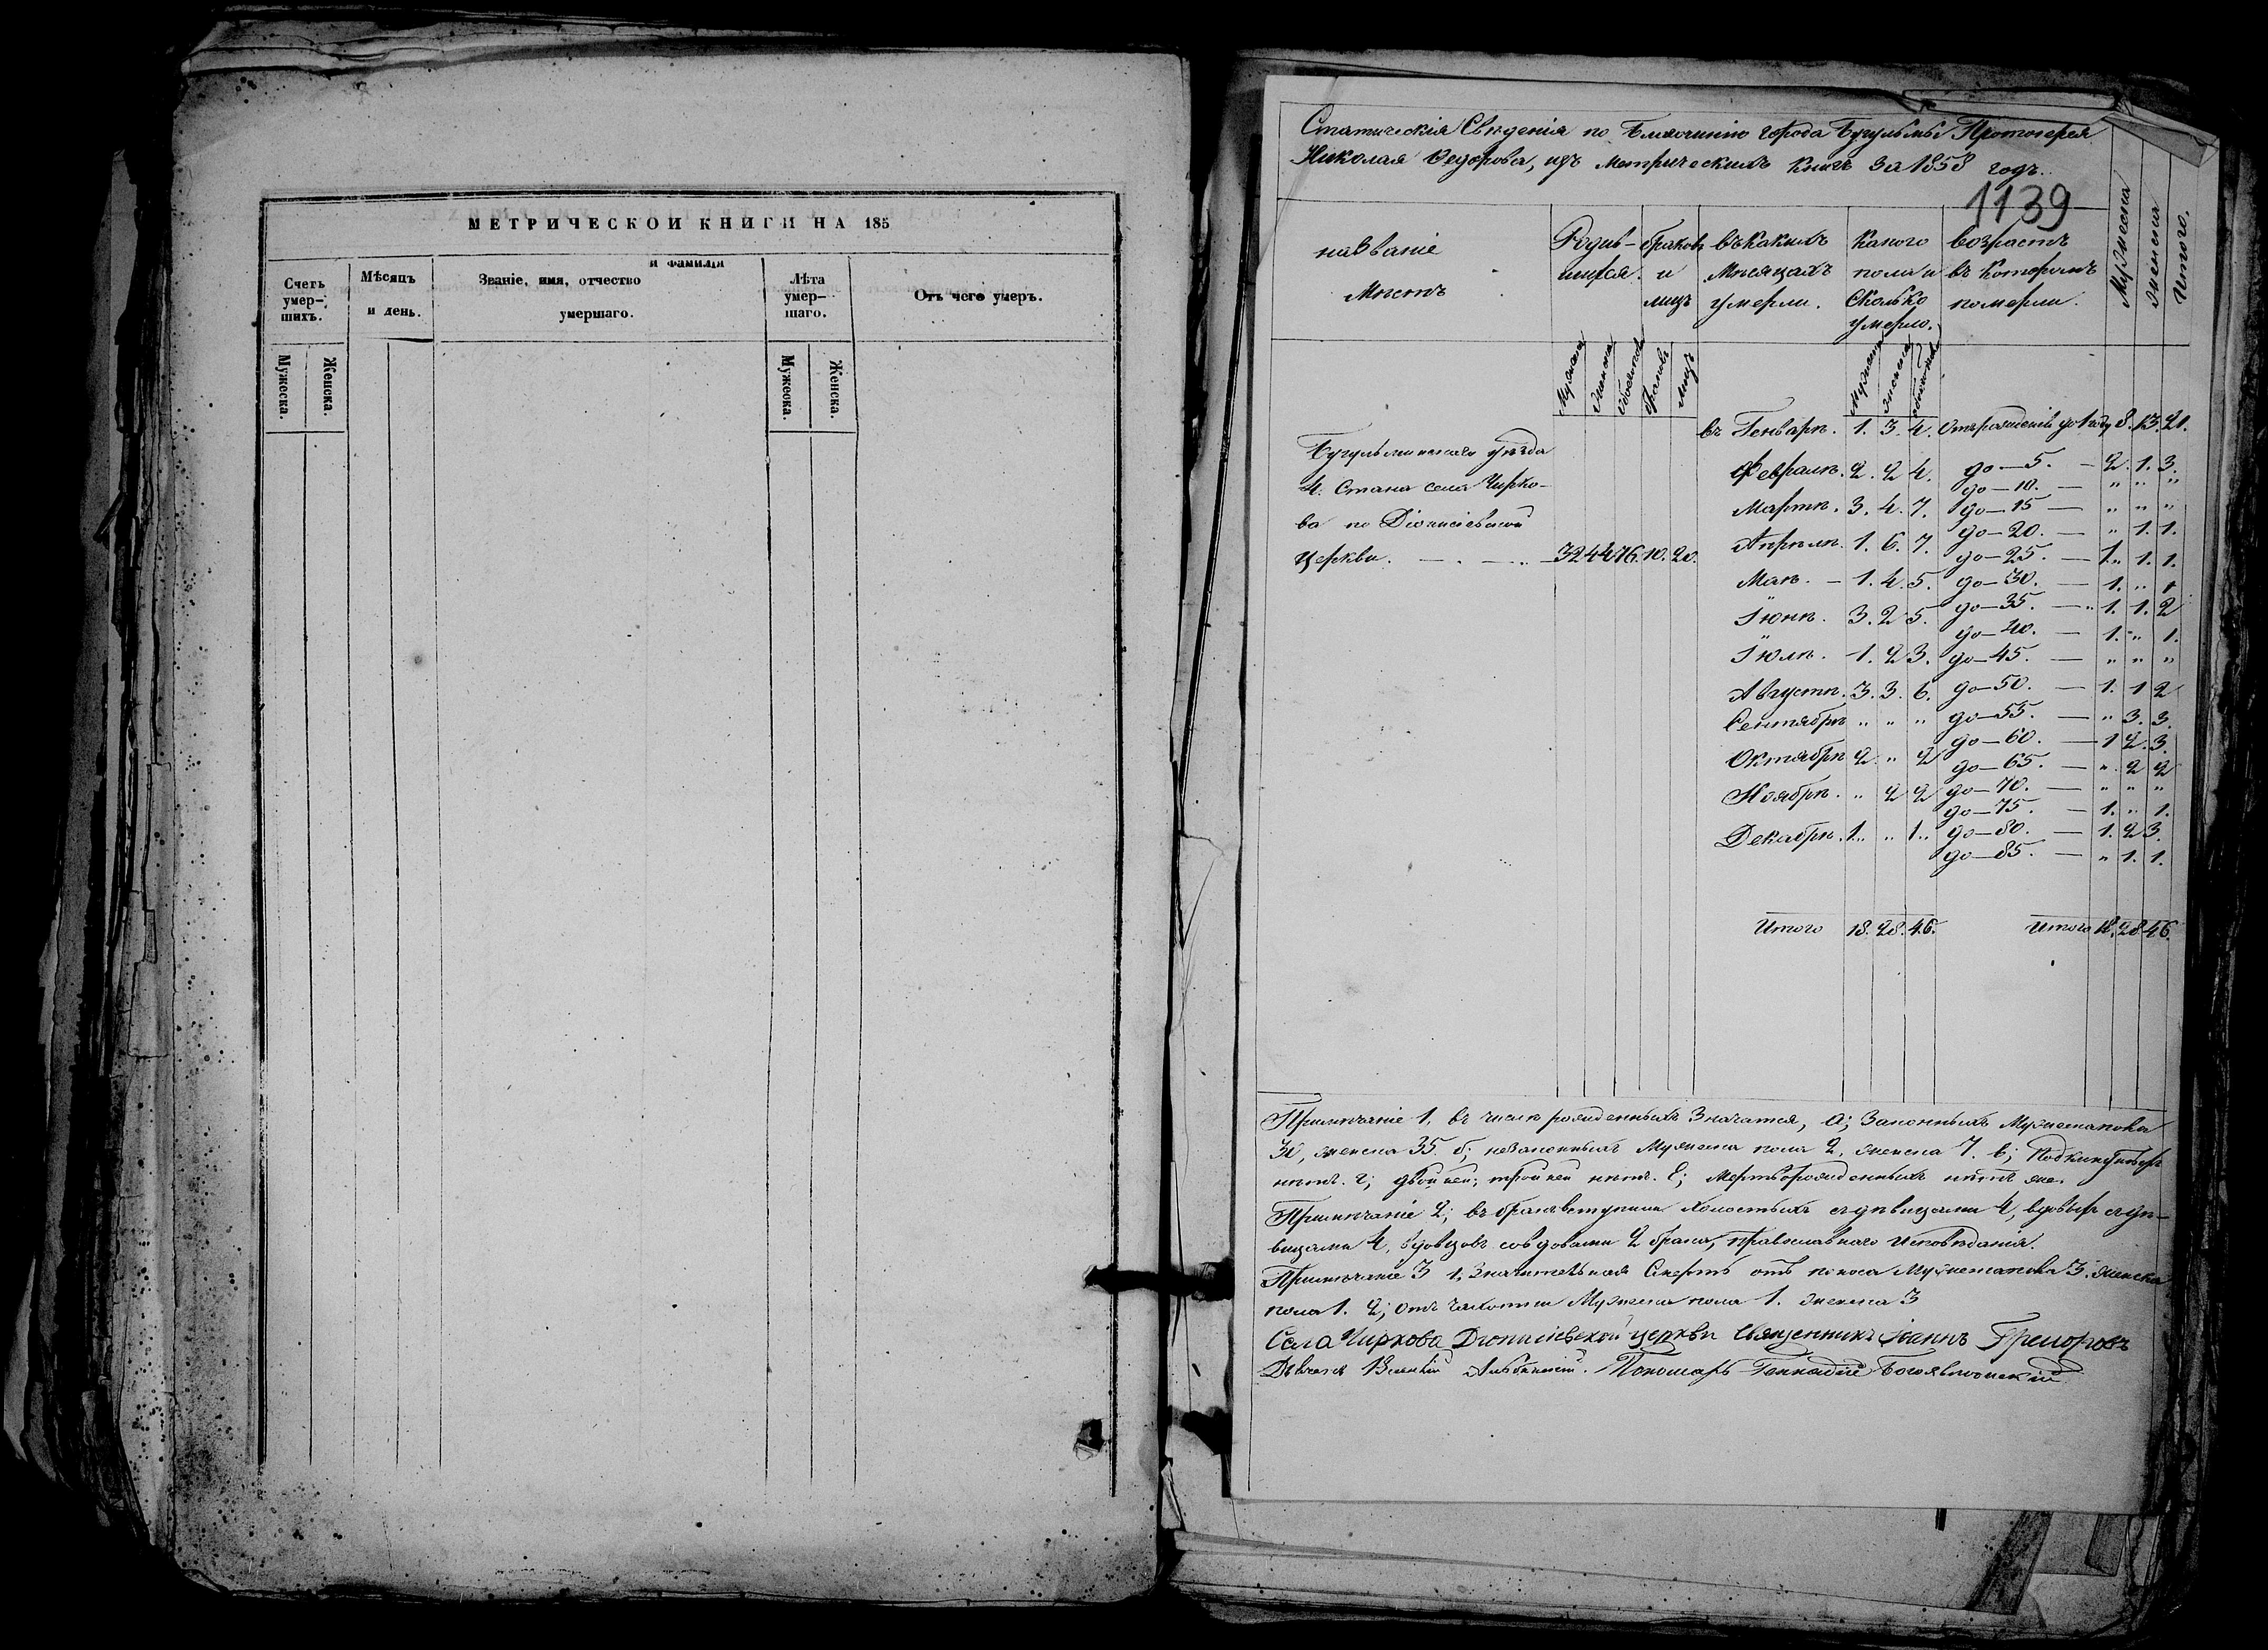 МЕТРИЧЕСКОЙ КНИГИ НА 185
Счетъ умер-шихъ.
Мѣсяцъ и день.
Званіе, имя, отчество и фамилія умершаго.
Лѣта умер-шаго.
Отъ чего умеръ.
Мужеска.
Женска.
Мужеска.
Женска.
Статическія Свѣденія по Благочинію города Бугульмы Протоіерея
Николая Федорова, изъ метрическихъ книгъ за 1858 годъ.
1139
названіе Мѣстъ
Родив-шихся.
браковъ и лицъ
въ какихъ Мѣсяцахъ умерли.
Какого пола и Сколько умерло.
возрастъ въ которомъ померли.
Мужеска
женска
Итого.
Мужеска женска обоегопола браковъ лицъ
Мужеска женска обоегопола
Бугульминскаго уѣзда
4. Стана села Чирко-
ва по Діонисіевской
Церкви. 32 44 76. 10. 20.
въ Генварѣ. 1. 3. 4. Отъ рожденія до 1 году 8. 13. 21.
Февралѣ. 2. 2 4. до — 5. — 2. 1. 3.
до — 10. — " " "
Мартѣ. 3. 4. 7. до — 15 — " " "
до — 20. — " 1. 1.
Апрѣлѣ. 1. 6. 7. до — 25. — 1. 1.
Маѣ. — 1. 4. 5. до — 30. — 1. " 1
Іюнѣ. 3. 2 5. до — 35. — 1. 1. 2
до — 40. — 1. " 1.
Іюлѣ. 1. 2 3. до — 45. — " " "
Августѣ. 3. 3. 6. до — 50. — 1. 1 2
Сентябрѣ " " " до — 55. — " 3. 3.
до — 60. — 1 2. 3.
Октябрѣ 2 " 2 до — 65. — " 2 2
Ноябрѣ. " 2 2 до — 70. — " " "
до — 75. — 1. " 1.
Декабрѣ. 1. " 1. до — 80. — 1. 2 3.
до — 85. — " 1. 1.
Итого 18. 28. 46. Итого 18. 28 46.
Примѣчаніе 1, въ числѣ рожденныхъ Значатся, а; Законныхъ Мужескапола
30, женска 35. б; незаконныхъ Мужеска пола 2, женска 7. в; Подкинутыхъ
нѣтъ. г; двойней; тройней нѣтъ. Е; Мертворожденныхъ нѣтъ же.
Примѣчаніе 2; въ бракъ вступили холостыхъ съ дѣвицами 4, вдовыхъ съ дѣ-
вицами 4, вдовцовъ совдовами 2 брака, православнаго Исповѣданія.
Примѣчаніе 3 1, Значительная Смерть отъ поноса Мужескапола 3. женска
пола 1. 2; отъ чахотки Мужеска пола 1. женска 3
Села Чиркова Діонисіевской церкви Священникъ Іоаннъ Григоровъ
Пономарь Геннадій Богоявленскій